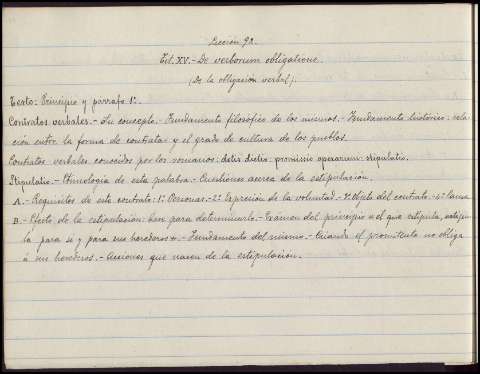 Lección 92.
Tít. XV.- De verborum obligatione.
(De la obligación verbal).
Texto: Principio y párrafo 1º.
Contratos verbales.- Su concepto.- Fundamento filosófico de los mismos.- Fundamento histórico: rela-
ción entre la forma de contratar y el grado de cultura de los pueblos.
Contratos verbales conocidos por los romanos: dotis dictio, promissio operarum, stipulatio.
Stipulatio.- Etimología de esta palabra.- Cuestiones acerca de la estipulación.
A.- Requisitos de este contrato: 1º Personas.- 2º Expresión de la voluntad.- 3º Objeto del contrato.- 4º Causa
B.- Efecto de la estipulación: bien para determinarlo.- Examen del principio "el que estipula, estipu-
la para sí y para sus herederos".- Fundamento del mismo.- Cuando el promitente no obliga
á sus herederos.- Acciones que nacen de la estipulación.